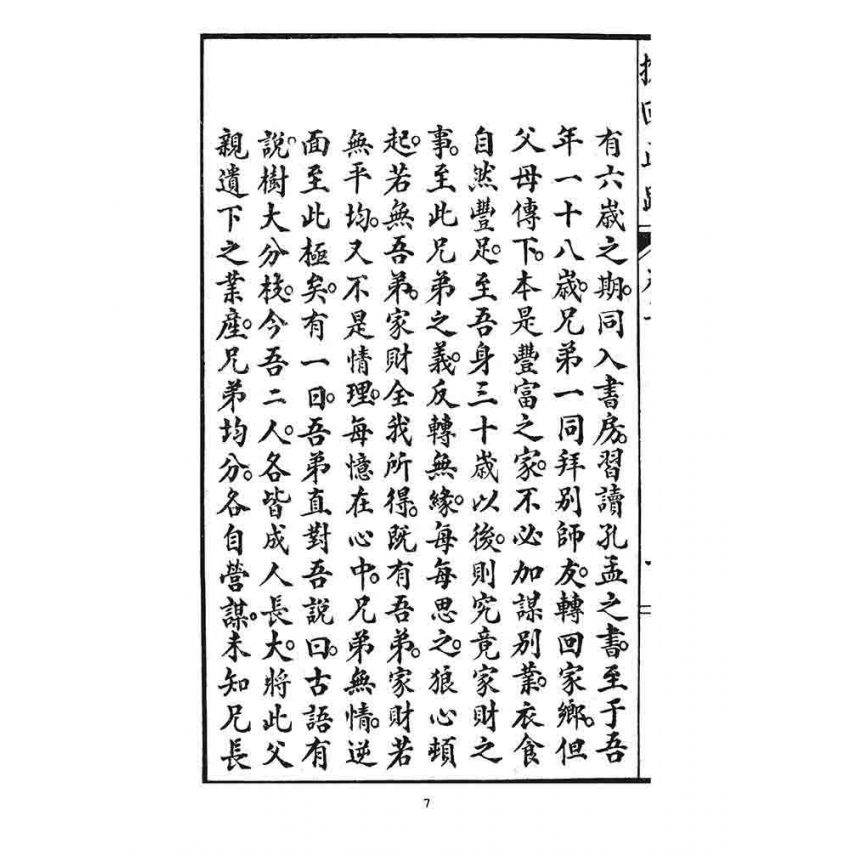 有六歲之期。同入書房。習讀孔孟之書。至于吾
年一十八歲。兄弟一同拜別師友。轉回家鄉。但
父母傳下。本是豐富之家。不必加謀別業。衣食
自然豐足。至吾身三十歲以後。則究竟家財之
事。至此兄弟之義。反轉無緣。每每思之。狼心頓
起。若無吾弟。家財全我所得。既有吾弟。家財若
無平均。又不是情理。每憶在心中。兄弟無情。逆
面至此極矣。有一日。吾弟直對吾說曰。古語有
說。樹大分枝。今吾二人。各皆成人長大。將此父
親遺下之業產。兄弟均分。各自營謀。未知兄長
7